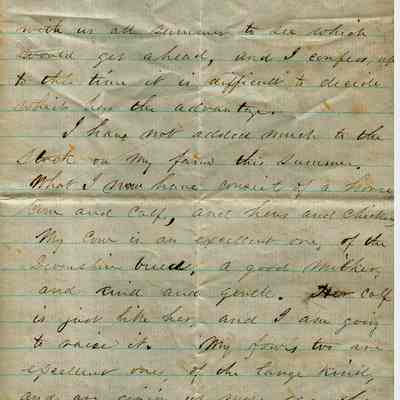 with us all summer to see which
would get ahead, and I confess, up
to this time it is difficult to decide
which has the advantage.
I have not added much to the
stock on my farm this summer.
What I now have consist of a horse
Cow and Calf, and hens and chickens
My Cow is an excellent one, of the
Devonshire breed, a good milker,
and kind and gentle. Her calf
is just like her, and I am going
to raise it. My fowls too are
excellent ones of the large kind,
and are giving us more